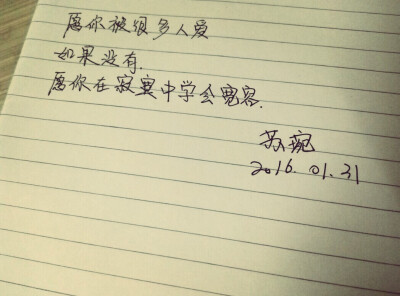 愿你被很多人爱
如果没有.
愿你在寂寞中学会宽容.
苏婉
2016.01.31